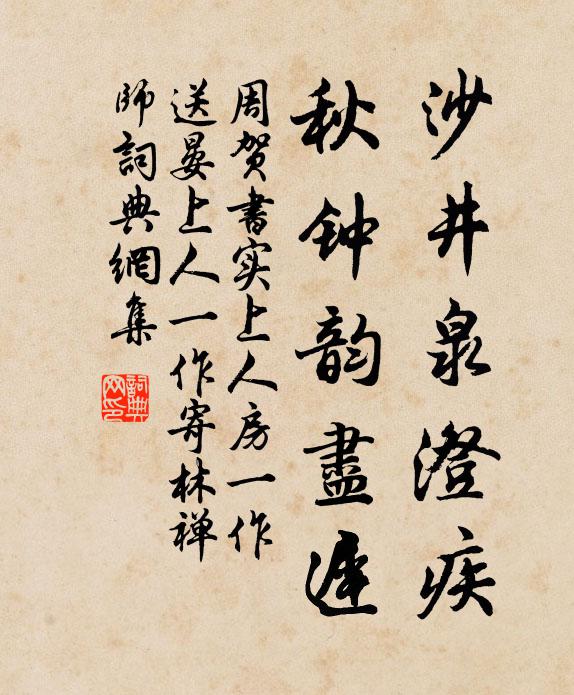 沙井泉澄疾
秋钟韵盡遲
周贺書实上人房一作
送晏上人一作寄林禅
師詞典網集
詞典网印